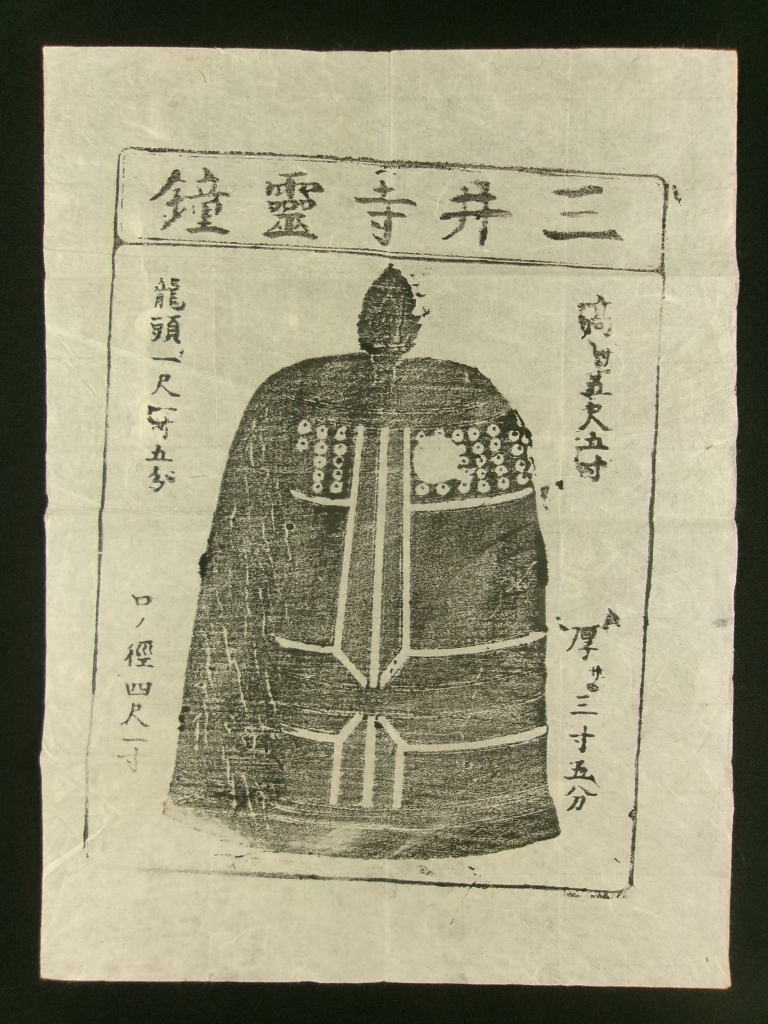 三井寺靈鐘
高サ五尺五寸
厚サ三寸五分
龍頭一尺一寸五分
口ノ徑四尺一寸